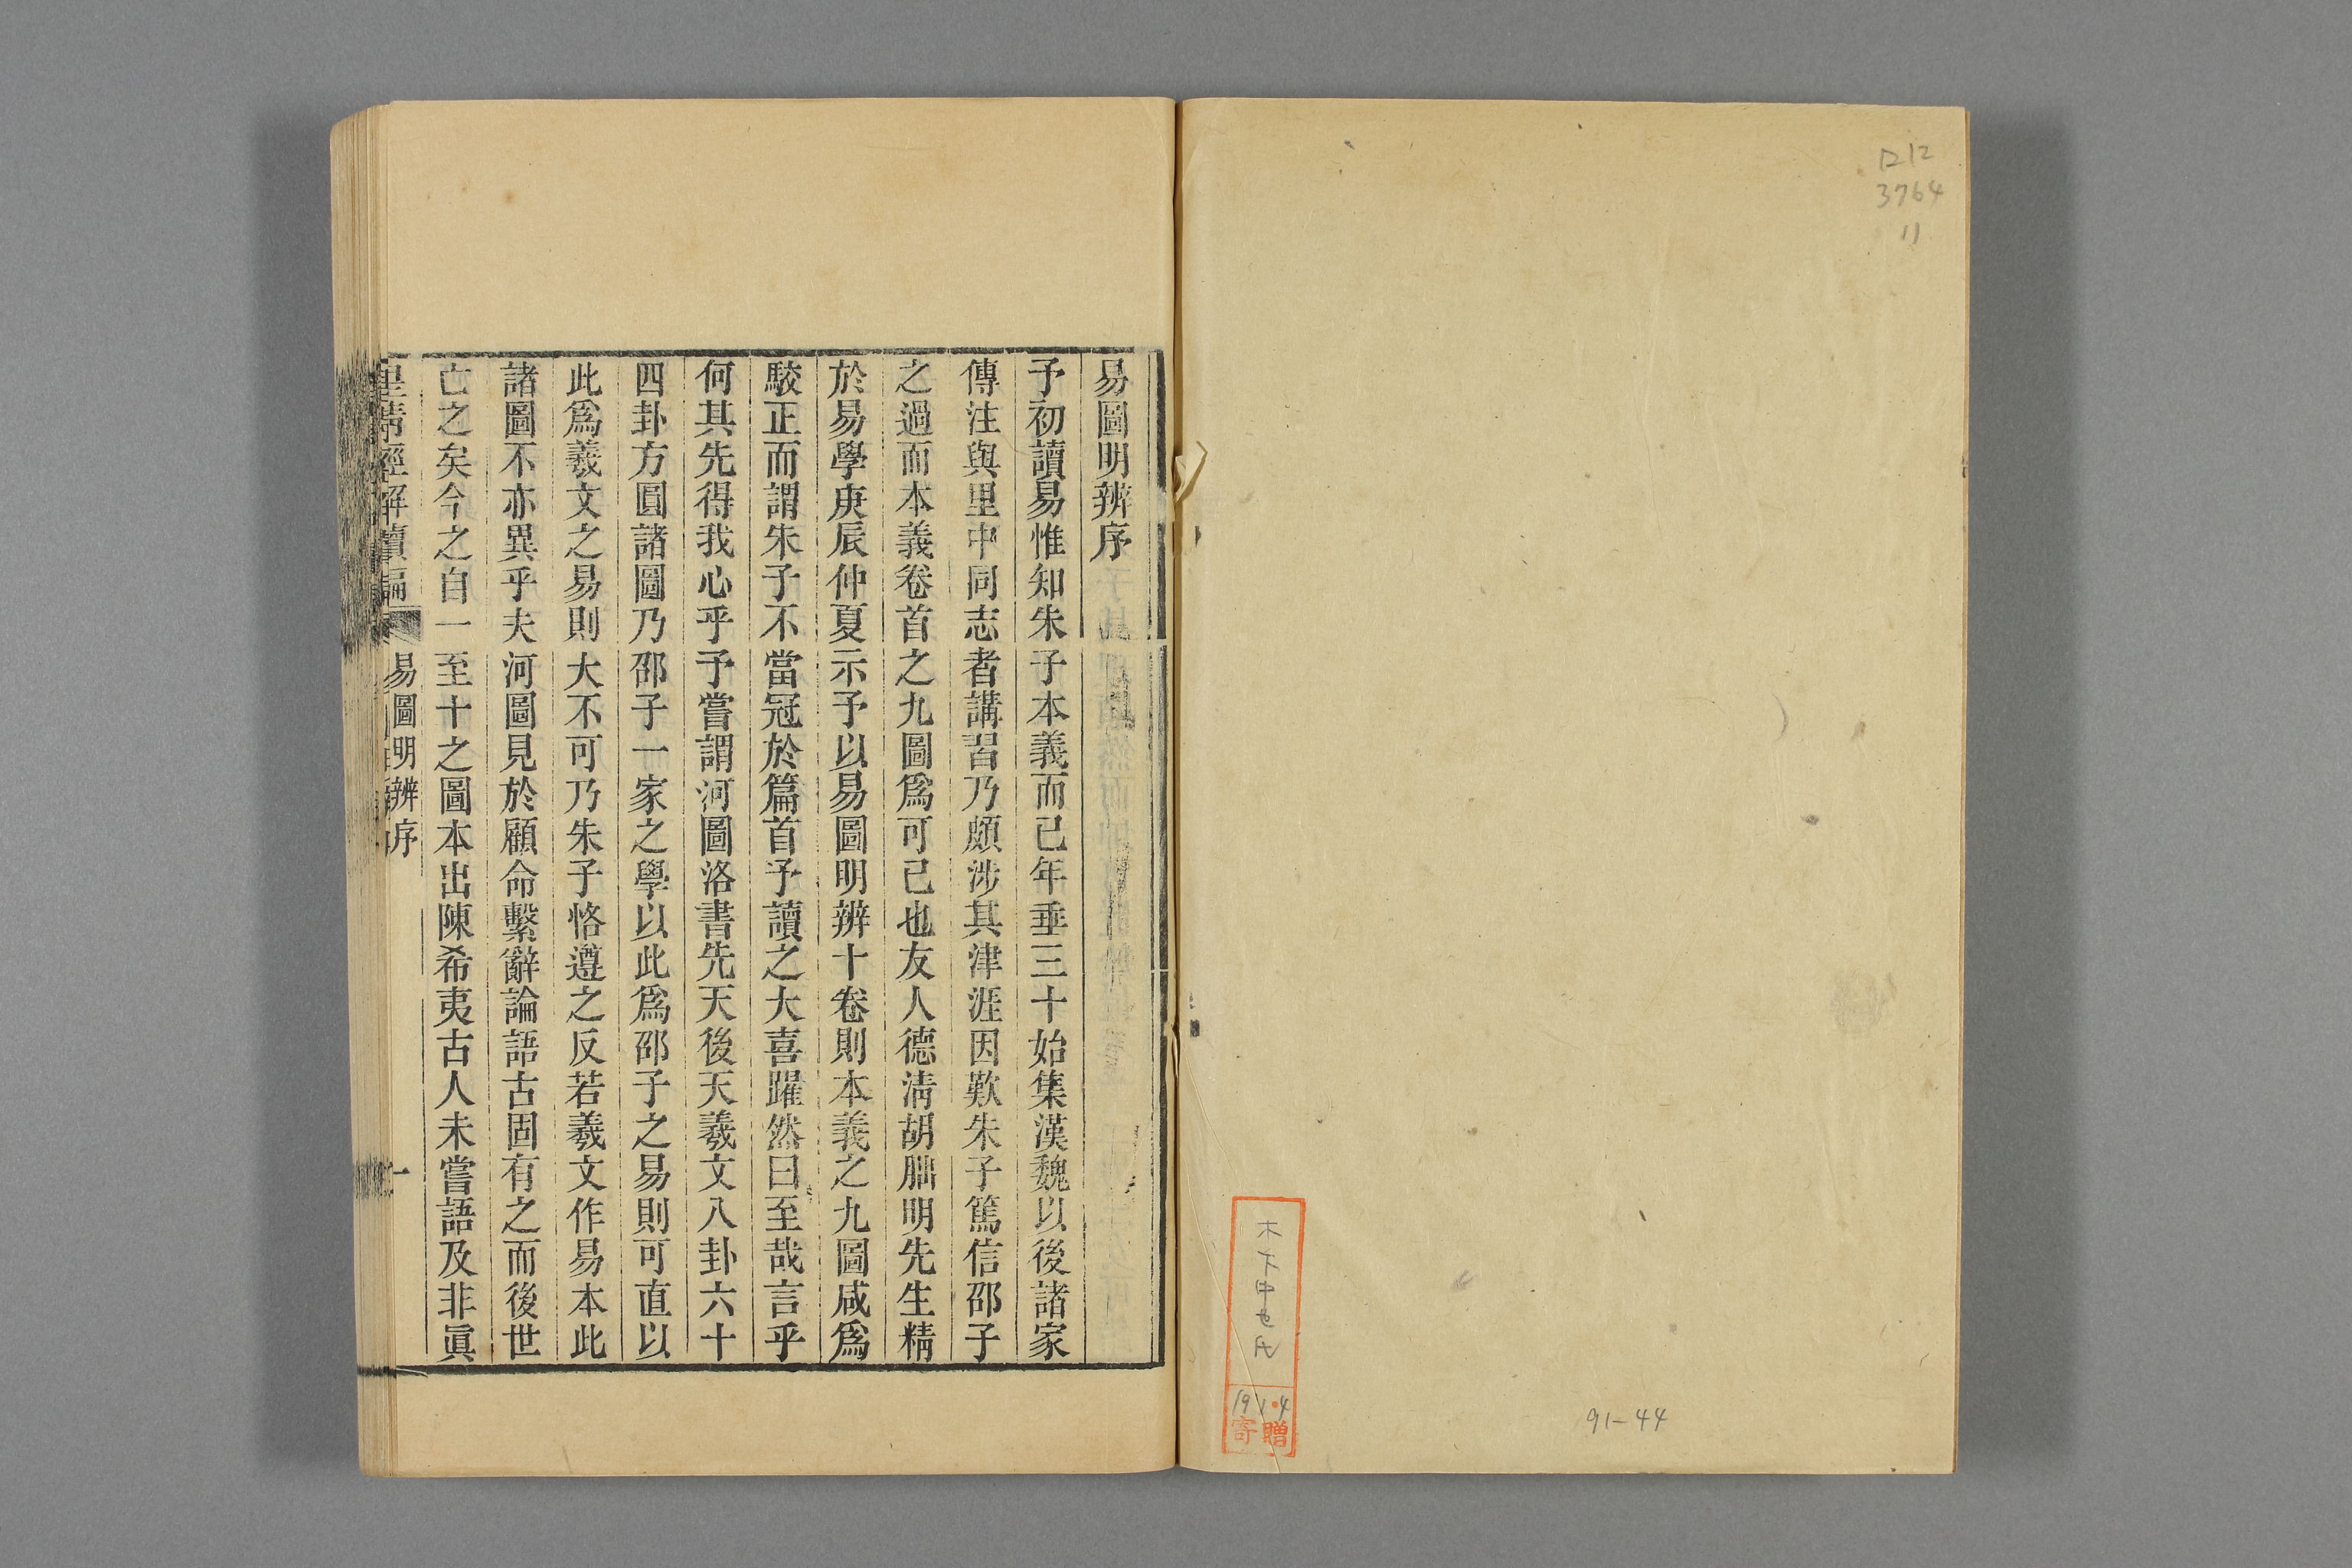 D12
3764
11
木下中也氏
寄贈
91-44
易圖明辨序
予初讀易惟知朱子本義而已年垂三十始集漢魏以後諸家
傳注與里中同志者講習乃頗涉其津涯因歎朱子篤信邵子
之過而本義卷首之九圖爲可已也友人德淸胡朏明先生精
於易學庚辰仲夏示予以易圖明辨十卷則本義之九圖咸爲
駮正而謂朱子不當冠於篇首予讀之大喜躍然曰至哉言乎
何其先得我心乎予嘗謂河圖洛書先天後天羲文八卦六十
四卦方圓諸圖乃邵子一家之學以此爲邵子之易則可直以
此爲羲文之易則大不可乃朱子恪遵之反若羲文作易本此
諸圖不亦異乎夫河圖見於顧命繫辭論語古固有之而後世
亡之矣今之自一至十之圖本出陳希夷古人未嘗語及非眞
皇淸經解續編
易圖明辨序
一